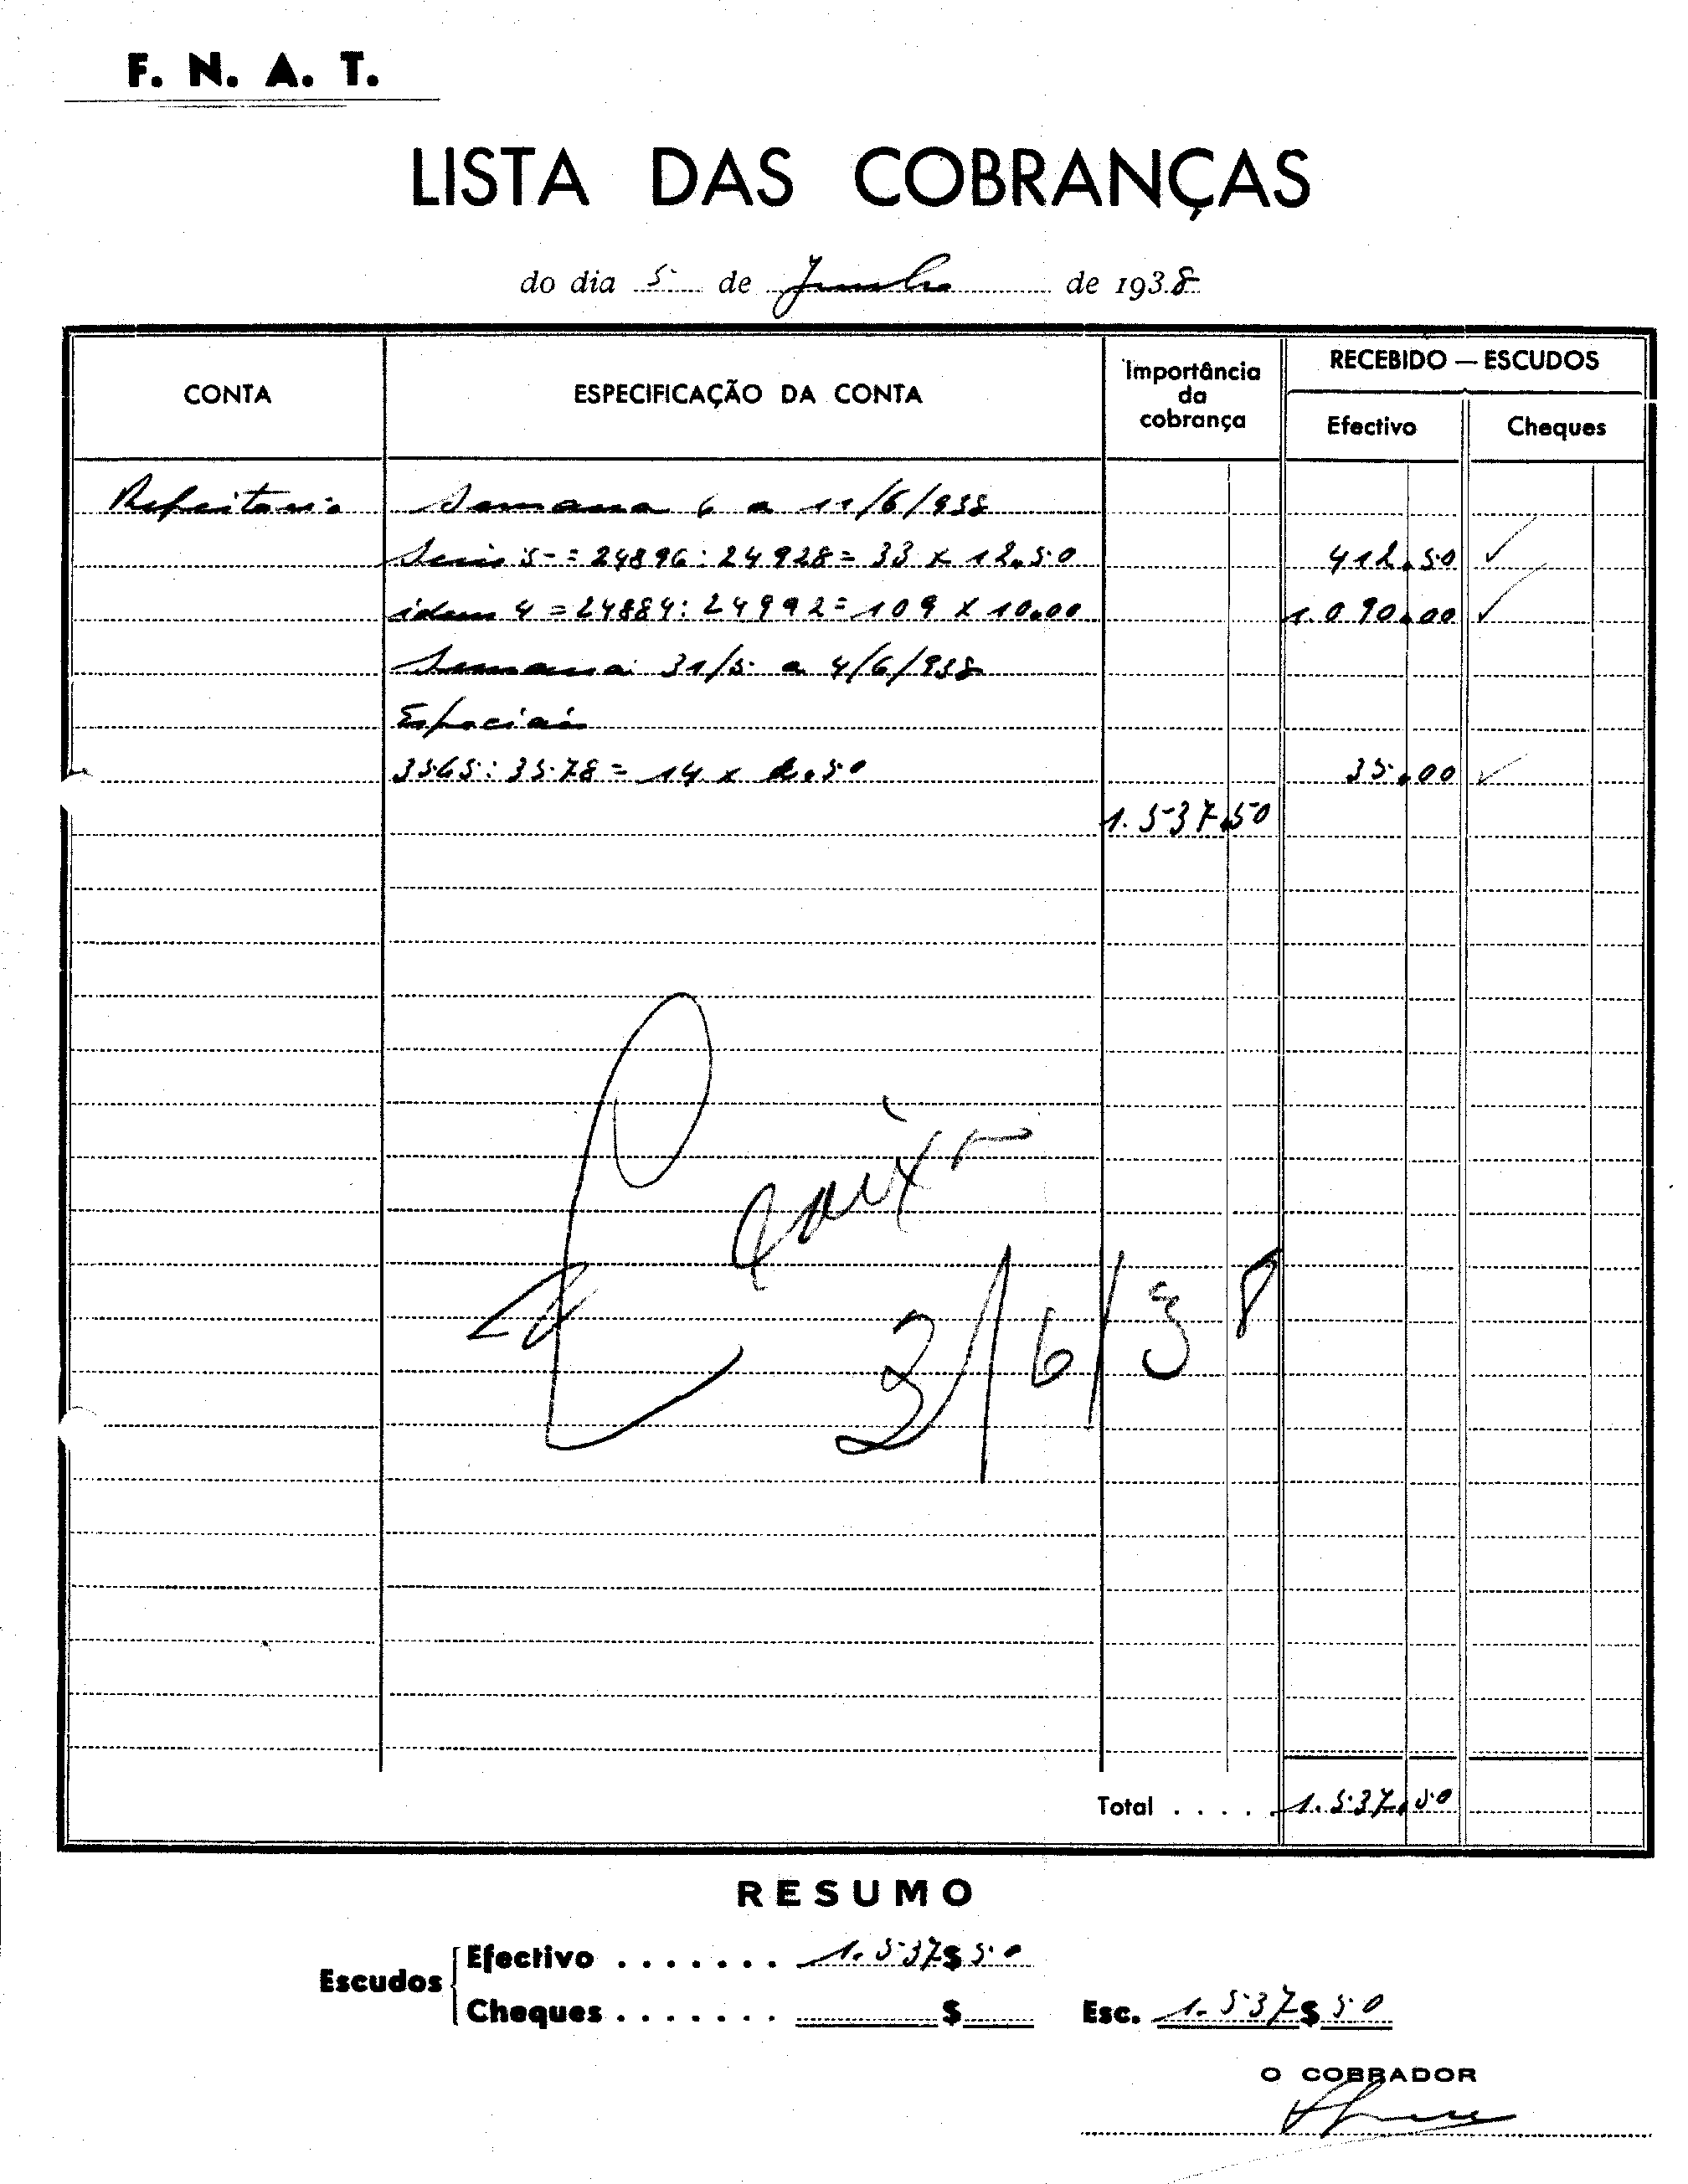 F. N. A. T.
LISTA DAS COBRANÇAS
do dia 5 de Junho de 1938
CONTA ESPECIFICAÇÃO DA CONTA Importância da cobrança RECEBIDO — ESCUDOS
Efectivo Cheques
Refeitorio Semana 6 a 11/6/938
Serie 5 = 24896 : 24928 = 33 x 12.50 412.50
idem 4 = 24884 : 24992 = 109 x 10.00 1.090.00
Semana 31/5 a 4/6/938
Especiais
3565 : 3578 = 14 x 2.50 35.00
1.537.50
Caixa
3/6/38
Total . . . . . 1.537.50
RESUMO
Escudos Efectivo . . . . . . . 1.537$50
Cheques . . . . . . . $ Esc. 1.537$50
O COBRADOR